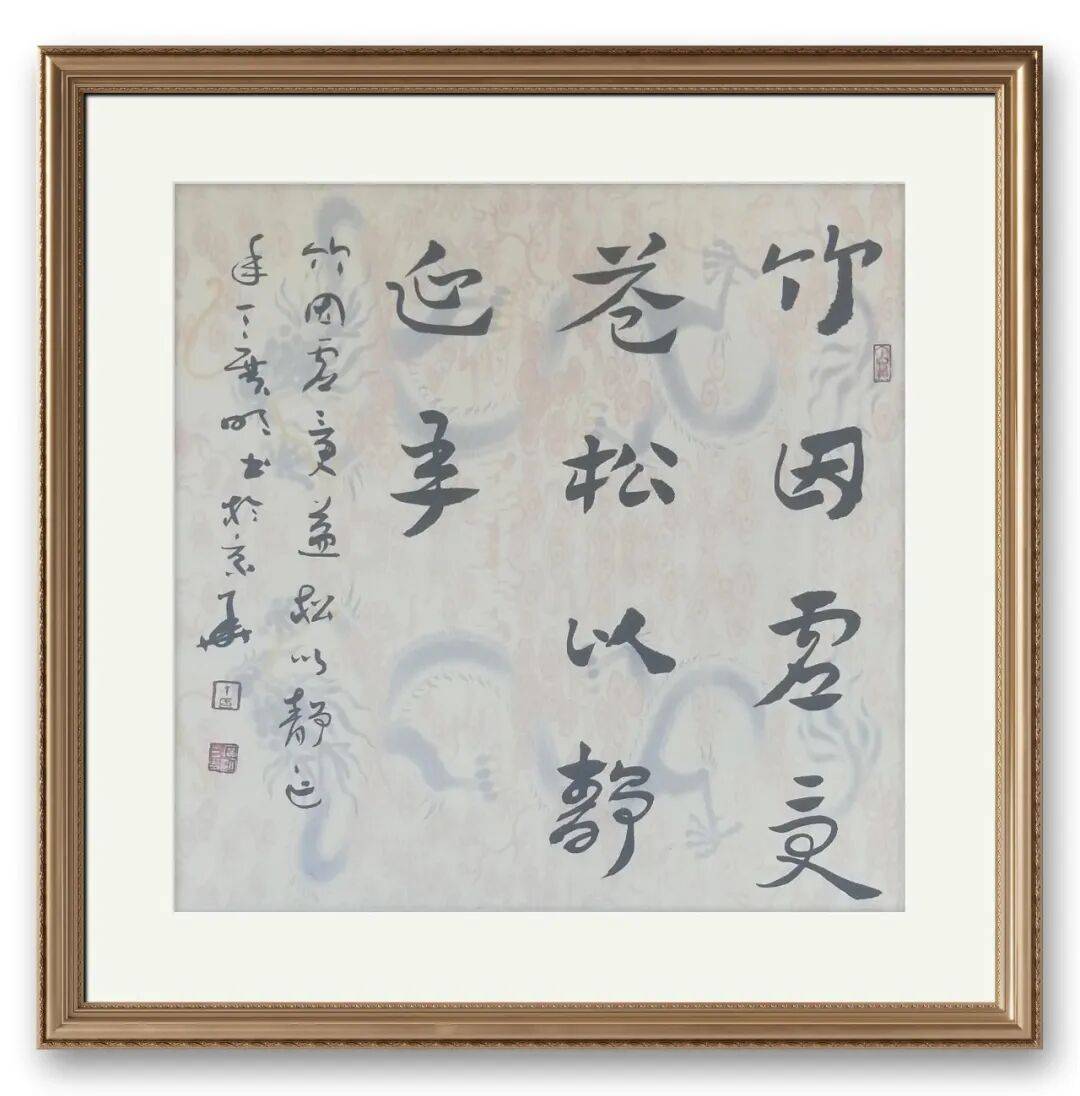 竹因虚受
益松以静
延年
竹因虚受益松以静延
年 明书於京华